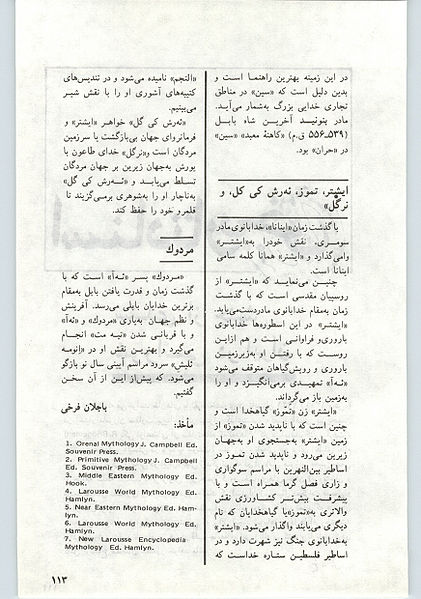 در این زمینه بهترین راهنما است و
بدین دلیل است که «سین» در مناطق
تجاری خدایی بزرگ به‌شمار می‌آید.
مادر پتونید آخرین شاه بابل
(۵۳۹ـ۵۵۶ ق.م) «کاهنهٔ معبد» «سین»
در «حران» بود.
ایشتر، تموز، ئه‌رش کی کل، و
نرگل»
با گذشت زمان «اینانا»، خدابانوی مادر
سومری، نقش خود را به «ایشتر»
وامی‌گذارد و «ایشتر» همانا کلمه سامی
اینانا است.
چنین می‌نماید که «ایشتر» از
روسپیان مقدسی است که با گذشت
زمان به‌مقام خدابانوی مادر دست می‌یابد.
«ایشتر» در این اسطوره‌ها خدابانوی
باروری و فراوانی است و هم از این
روست که با رفتن او به‌زیرزمین
باروری و رویش گیاهان متوقف می‌شود
«ئه‌آ» تمهیدی برمی‌انگیزد و او را
به‌زمین باز می‌گرداند.
«ایشتر» زن «تموز» گیاهخدا است و
چنین است که با ناپدید شدن «تموز» از
زمین «ایشتر» به‌جستجوی او به‌جهان
زیرین می‌رود و ناپدید شدن تموز در
اساطیر بین‌النهرین با مراسم سوگواری
و زاری فصل گرما همراه است و با
پیشرفت بیش‌تر کشاورزی نقش
والاتری به «تموز» یا گیاهخدایان که نام
دیگری می‌یابند واگذار می‌شود. «ایشتر»
به‌خدابانوی جنگ نیز شهرت دارد و در
اساطیر فلسطین ستاره خداست که
«النجم» نامیده می‌شود و در تندیس‌های
کتیبه‌های آشوری او را با نقش شیر
می‌بینیم.
«ئه‌رش کی گل» خواهر «ایشتر» و
فرمانروای جهان بی‌بازگشت یا سرزمین
مردگان است و «نرگل» خدای طاعون با
یورش به‌جهان زیرین بر جهان مردگان
تسلط می‌یابد و «ئه‌رش کی گل»
به‌ناچار او را به‌شوهری برمی‌گزیند تا
قلمرو خود را حفظ کند.
مردوك
«مردوك» پسر «ئه‌آ» است که با
گذشت زمان و قدرت یافتن بابل به‌مقام
برترین خدایان بابلی می‌رسد. آفرینش
و نظم جهان به‌یاری «مردوك» و «ئه‌آ»
و با قربانی شدن «تیه مت» انجام
می‌گیرد و بهترین نقش او در «انومه
ئلیش» سرود مراسم آیینی سال نو بازگو
می‌شود، که پیش از این از آن سخن
گفتیم.
باجلان فرخی
مأخذ:
1. Orenal Mythology J. Campbell Ed.
Souvenir Press.
2. Primitive Mythology J. Campbell
Ed. Souvenir Press.
3. Middle Eastern Mythology Ed.
Hook.
4. Larousse World Mythology Ed.
Hamlyn.
5. Near Eastern Mythology Ed. Ham-
lyn.
6. Larousse World Mythology Ed.
Hamlyn.
7. New Larousse Encyclopedia
Mythology Ed. Hamlyn.
۱۱۳